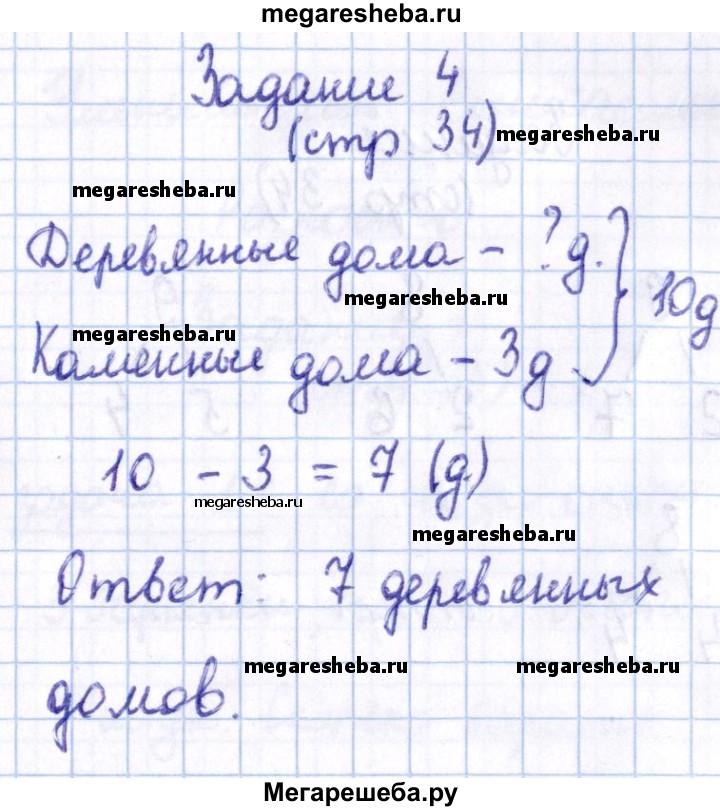 megaresheba.ru
Задание 4
(стр. 34) megaresheba.ru
megaresheba.ru
Деревянные дома - ? д. } 10д
megaresheba.ru
megaresheba.ru
Каменные дома - 3д
10 - 3 = 7 (д)
megaresheba.ru
megaresheba.ru
Ответ: 7 деревянных
megaresheba.ru megaresheba.ru
домов.
Мегарешеба.ру